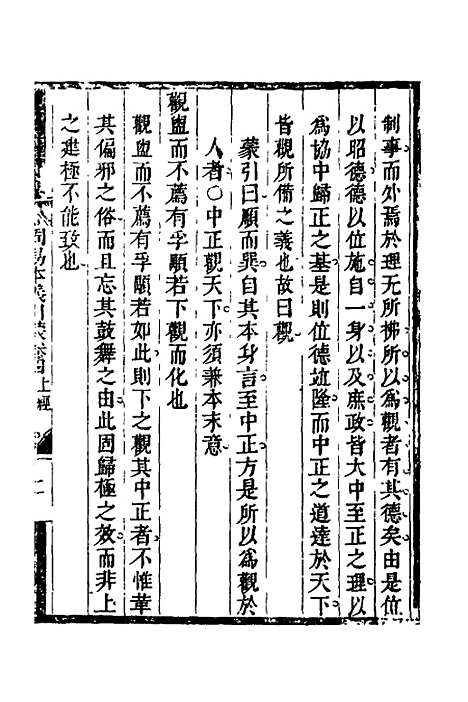 制事而外焉於理无所拂所以為觀者有其德矣由是位
以昭德德以位施自一身以及庶政皆大中至正之理以
為協中歸正之基是則位德竝隆而中正之道達於天下
皆觀所備之義也故曰觀
蒙引曰順而巽自其本身言至中正方是所以為觀於
人者○中正觀天下亦須兼本末意
觀盥而不薦有孚顒若下觀而化也
觀盥而不薦有孚顒若如此則下之觀其中正者不惟革
其偏邪之俗而且忘其鼓舞之由此固歸極之效而非上
之建極不能致也
周易本義引蒙 上經